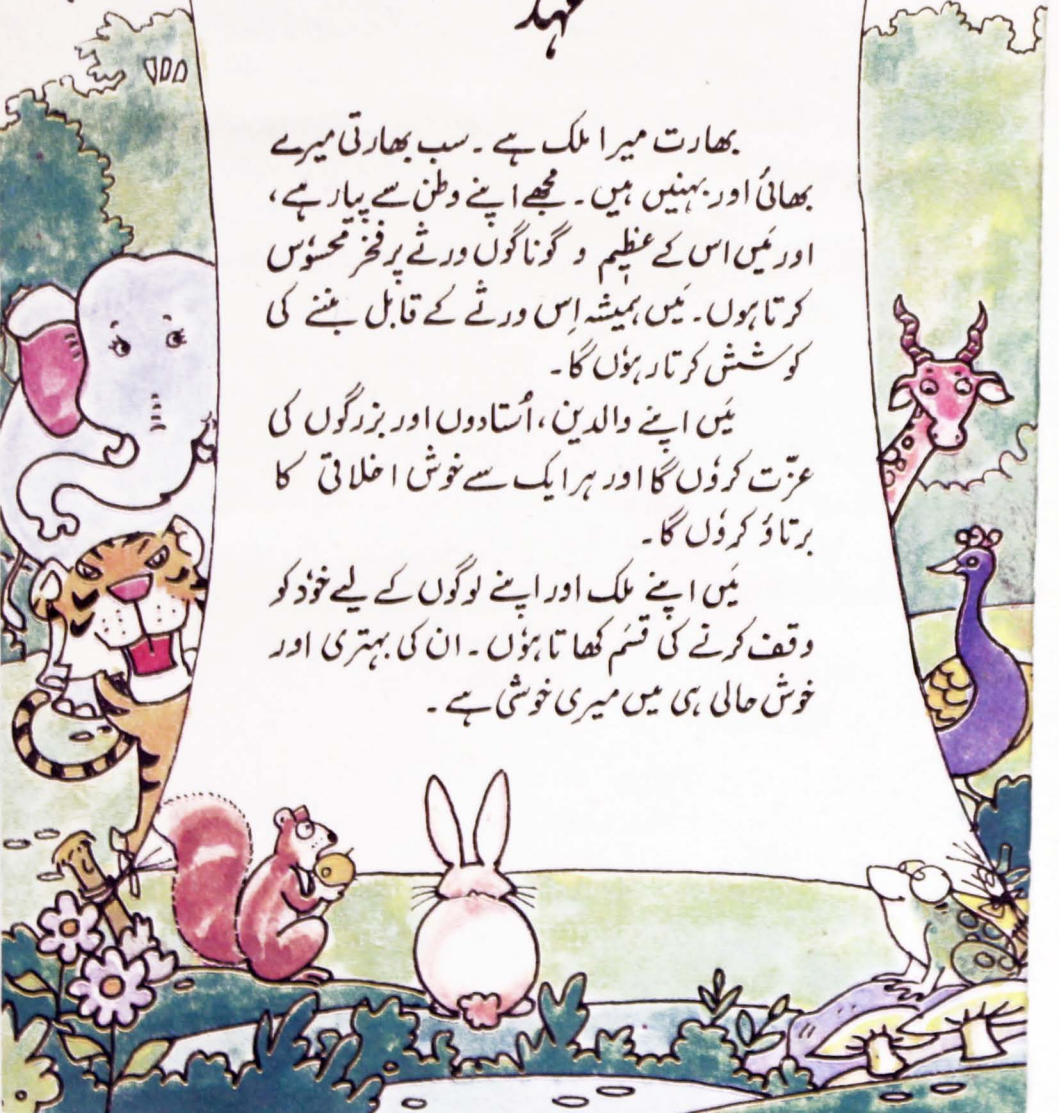 عہد
بھارت میرا ملک ہے ۔ سب بھارتی میرے
بھائی اور بہنیں ہیں ۔ مجھے اپنے وطن سے پیار ہے ،
اور مَیں اس کے عظیم و گوناگوں ورثے پر فخر محسوٗس
کرتا ہوں ۔ مَیں ہمیشہ اِس ورثے کے قابل بننے کی
کوشش کرتا رہوٗں گا ۔
مَیں اپنے والدین ، اُستادوں اور بزرگوں کی
عزّت کروٗں گا اور ہر ایک سے خوش اخلاقی کا
برتاؤ کروٗں گا ۔
مَیں اپنے ملک اور اپنے لوگوں کے لیے خوٗد کو
وقف کرنے کی قسَم کھاتا ہوٗں ۔ ان کی بہتری اور
خوش حالی ہی میں میری خوشی ہے ۔